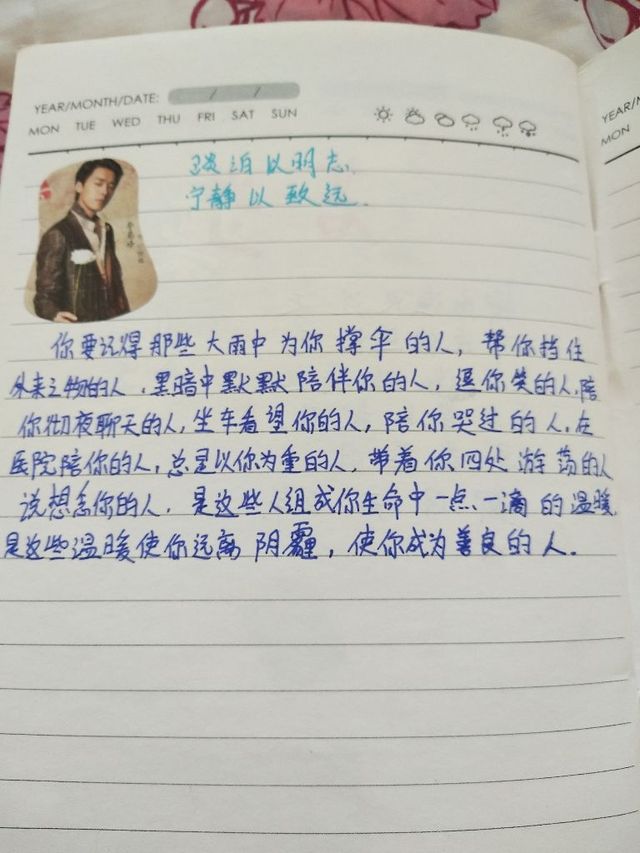 YEAR/MONTH/DATE: / /
MON TUE WED THU FRI SAT SUN
淡泊以明志,
宁静以致远.
你要记得那些大雨中为你撑伞的人, 帮你挡住
外来之物的人, 黑暗中默默陪伴你的人, 逗你笑的人, 陪
你彻夜聊天的人, 坐车看望你的人, 陪你哭过的人, 在
医院陪你的人, 总是以你为重的人, 带着你四处游荡的人
说想念你的人, 是这些人组成你生命中一点一滴的温暖,
是这些温暖使你远离阴霾, 使你成为善良的人.
YEAR/
MON